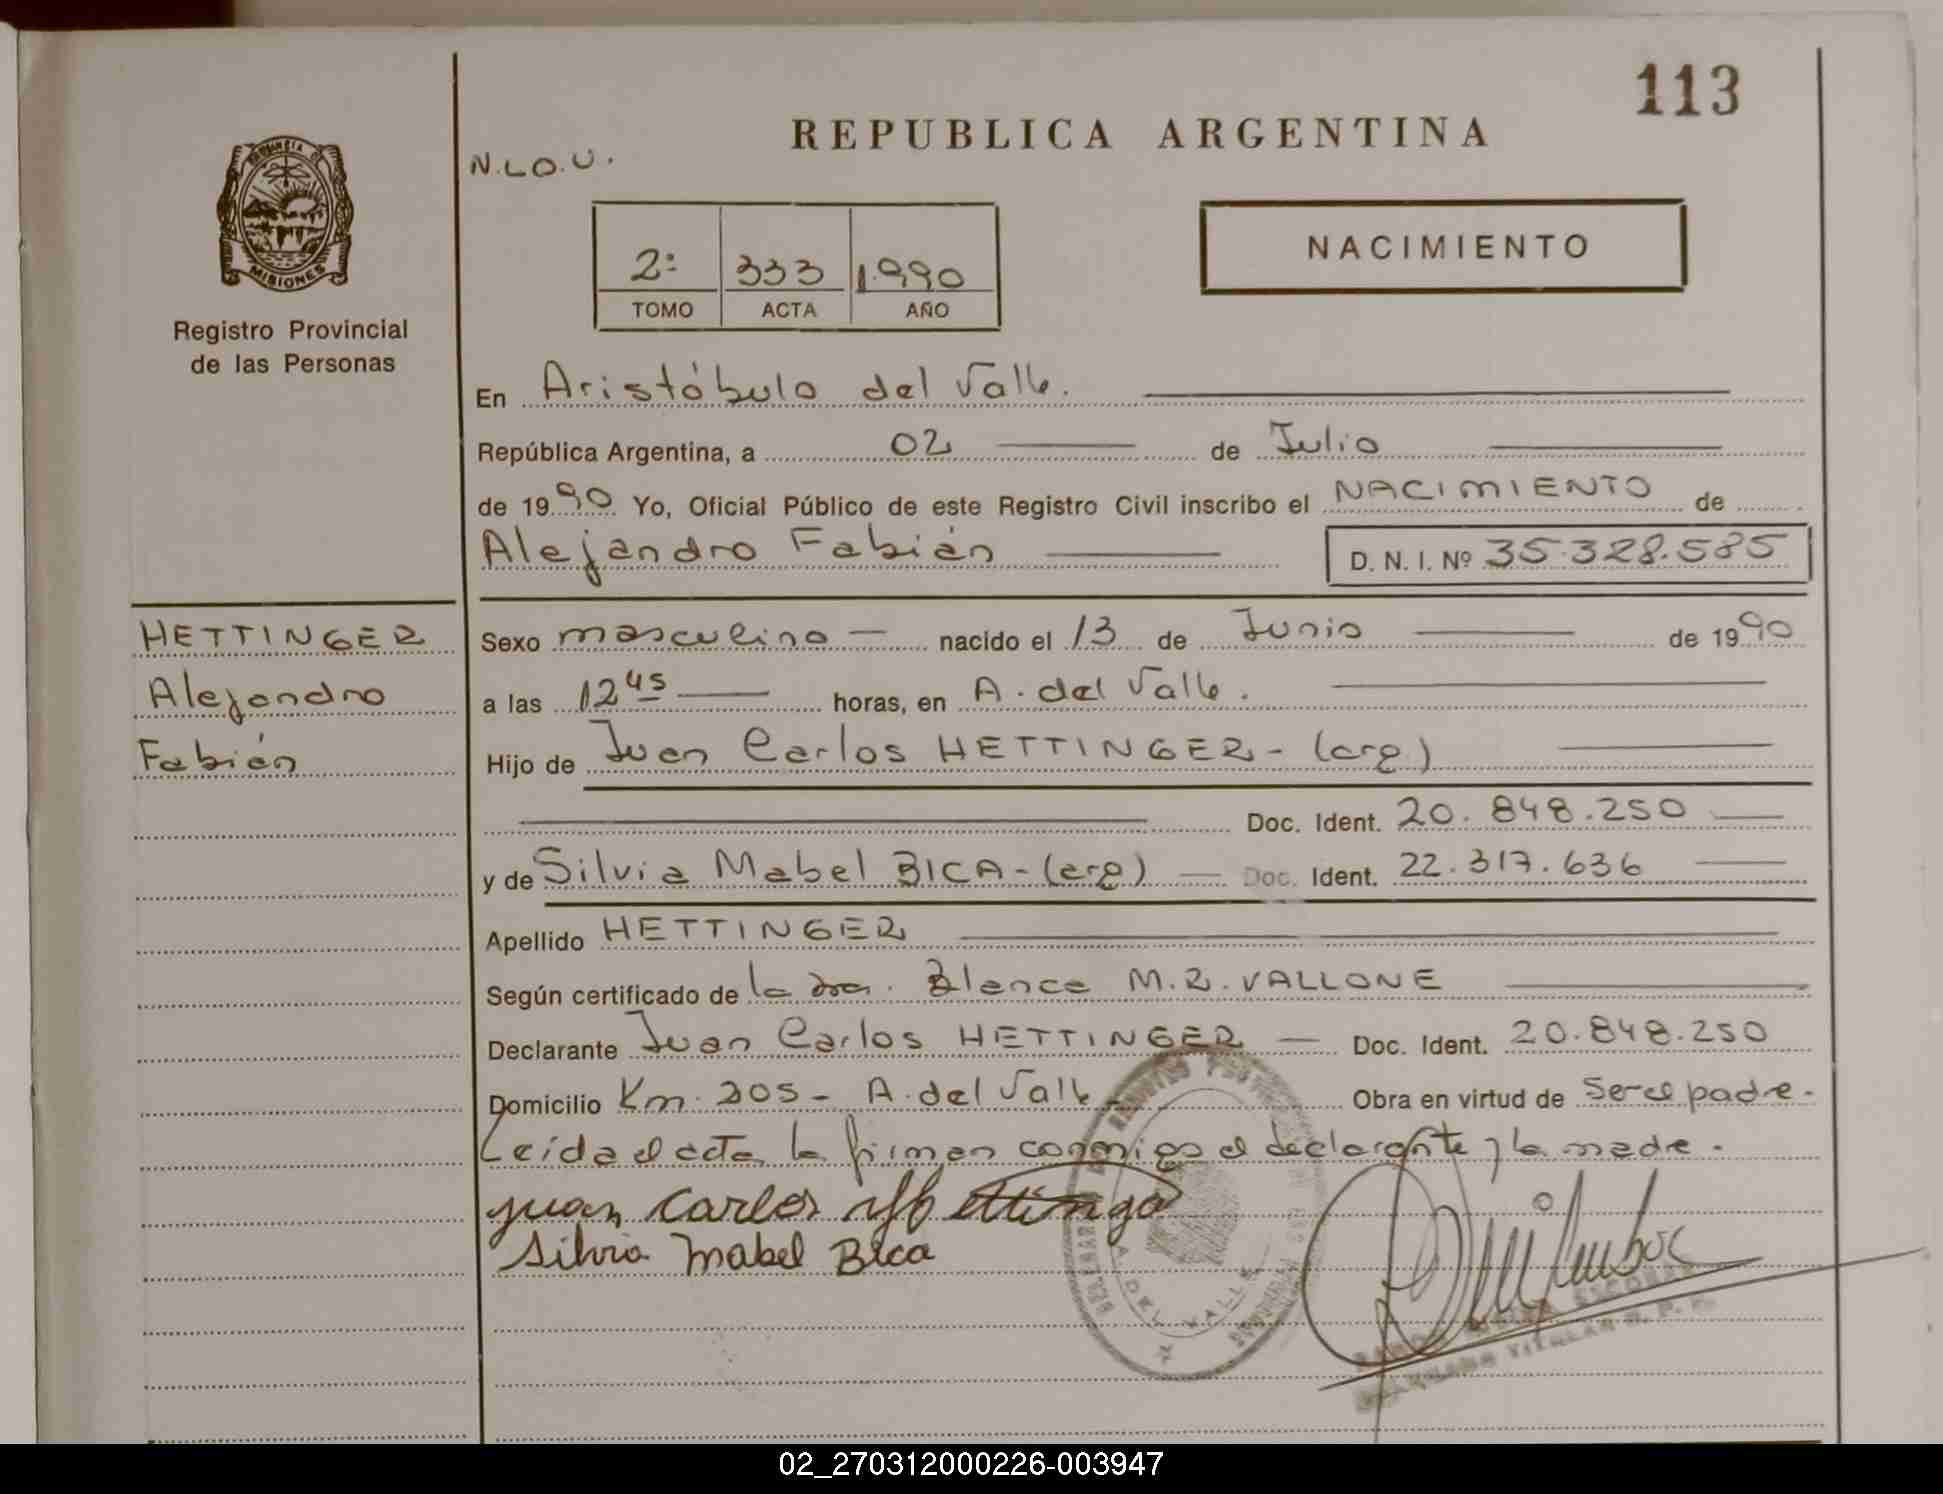 113
REPUBLICA ARGENTINA
N.L.O.U.
PROVINCIA DE
MISIONES
Registro Provincial
de las Personas
2º 333 1.990
TOMO ACTA AÑO
NACIMIENTO
En Aristóbulo del Valle.
República Argentina, a 02 de Julio
de 1990 Yo, Oficial Público de este Registro Civil inscribo el NACIMIENTO de
Alejandro Fabián D. N. I. Nº 35.328.585
HETTINGER
Alejandro
Fabián
Sexo masculino nacido el 13 de Junio de 1990
a las 12 45 horas, en A. del Valle.
Hijo de Juan Carlos HETTINGER - (arg)
Doc. Ident. 20.848.250
y de Silvia Mabel BICA - (arg) Doc. Ident. 22.317.636
Apellido HETTINGER
Según certificado de la Dra. Blanca M. R. VALLONE
Declarante Juan Carlos HETTINGER Doc. Ident. 20.848.250
Domicilio Km. 205 - A. del Valle Obra en virtud de ser el padre.
Leída el acta, la firman conmigo el declarante y la madre.
Juan Carlos Hettinger
Silvia Mabel Bica
A. DEL VALLE
ESCOBAR
02_270312000226-003947